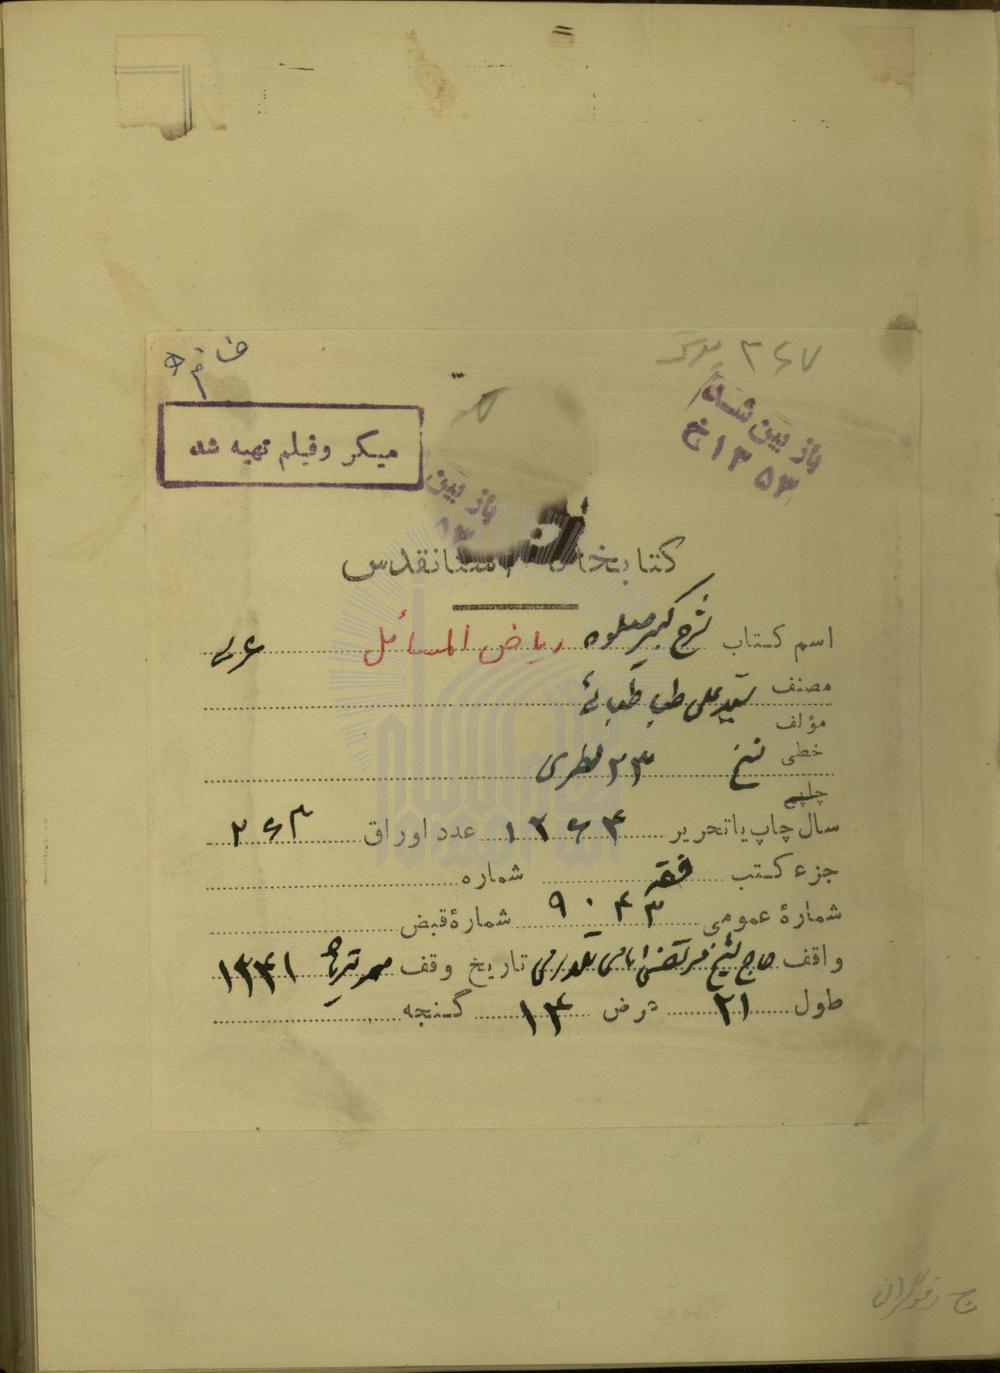 ۲۶۷ برگ
باز بین شد
۱۳۵۳ خ
میکر وفیلم تهیه شد
باز بین
کتابخانه آستانقدس
اسم کتاب شرح کبیر صلوه ریاض المسائل عربی
مصنف سید علی طباطبائی
مؤلف
خطی نسخ ۲۳ سطری
چاپی
سال چاپ یا تحریر ۱۲۶۴ عدد اوراق ۲۶۳
جزء کتب فقه شماره
شمارهٔ عمومی ۹۰۴۳ شمارهٔ قبض
واقف حاج شیخ مرتضی تاریخ وقف تیرماه ۱۳۴۱
طول ۲۱ عرض ۱۴ گنجه